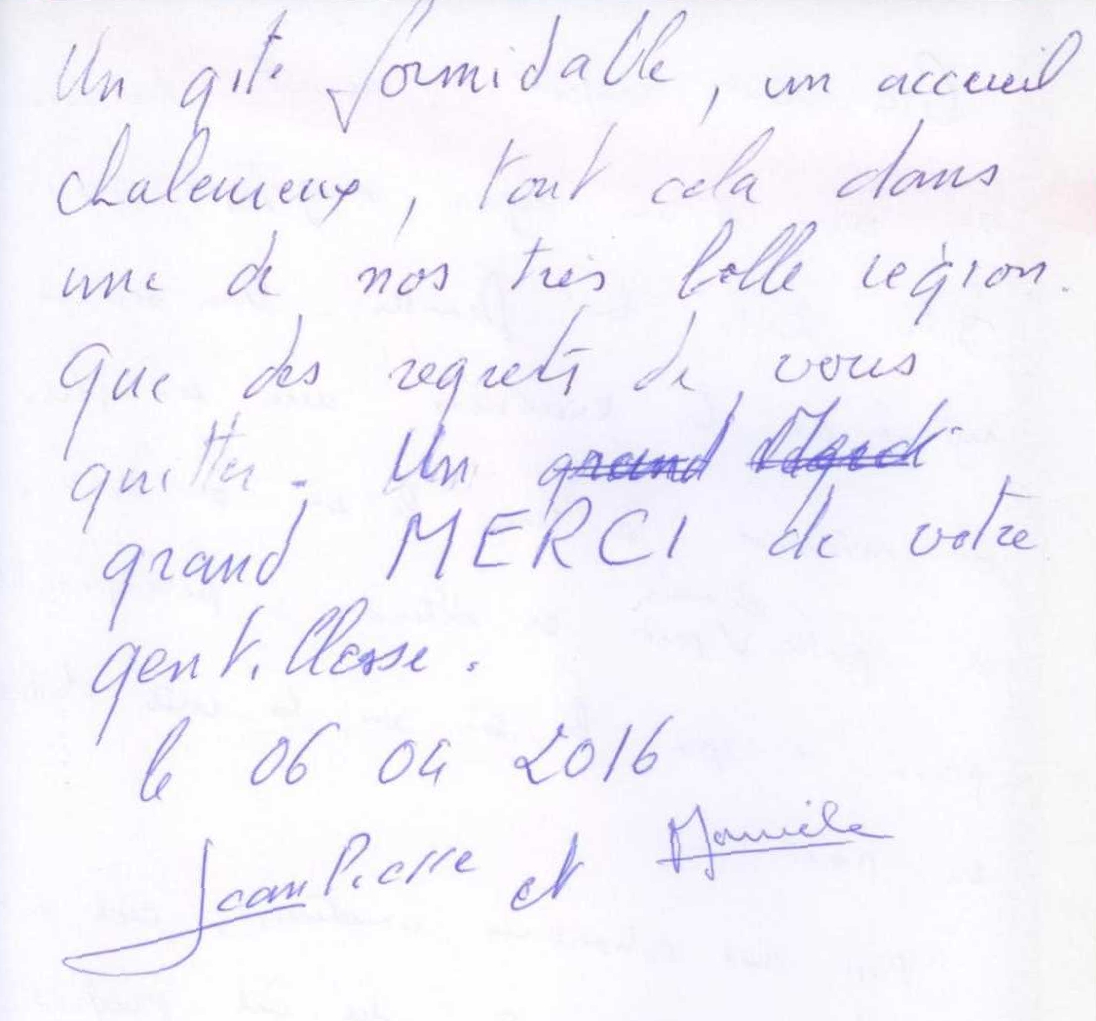 Un gite formidable, un accueil
chaleureux, tout cela dans
une de nos très belle région.
Que des regrets de vous
quitter. Un grand
grand MERCI de votre
gentillesse.
le 06 04 2016
Jean Pierre et